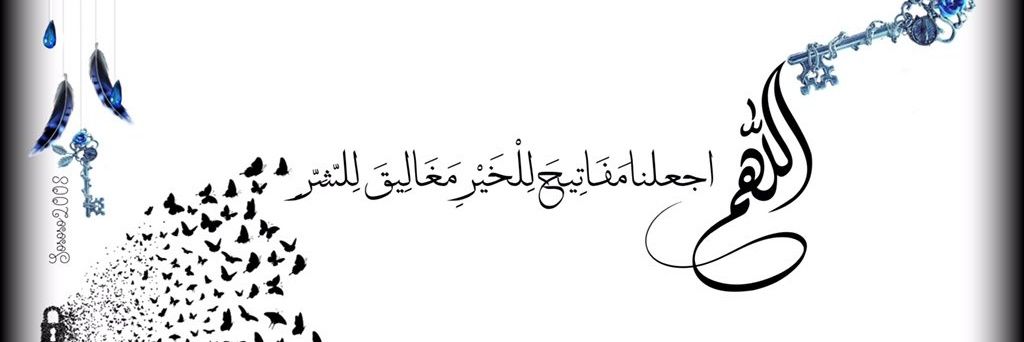 اللهم
اجعلنا مَفَاتِيحَ لِلْخَيْرِ مَغَالِيقَ لِلشّرِّ
Sososo2008